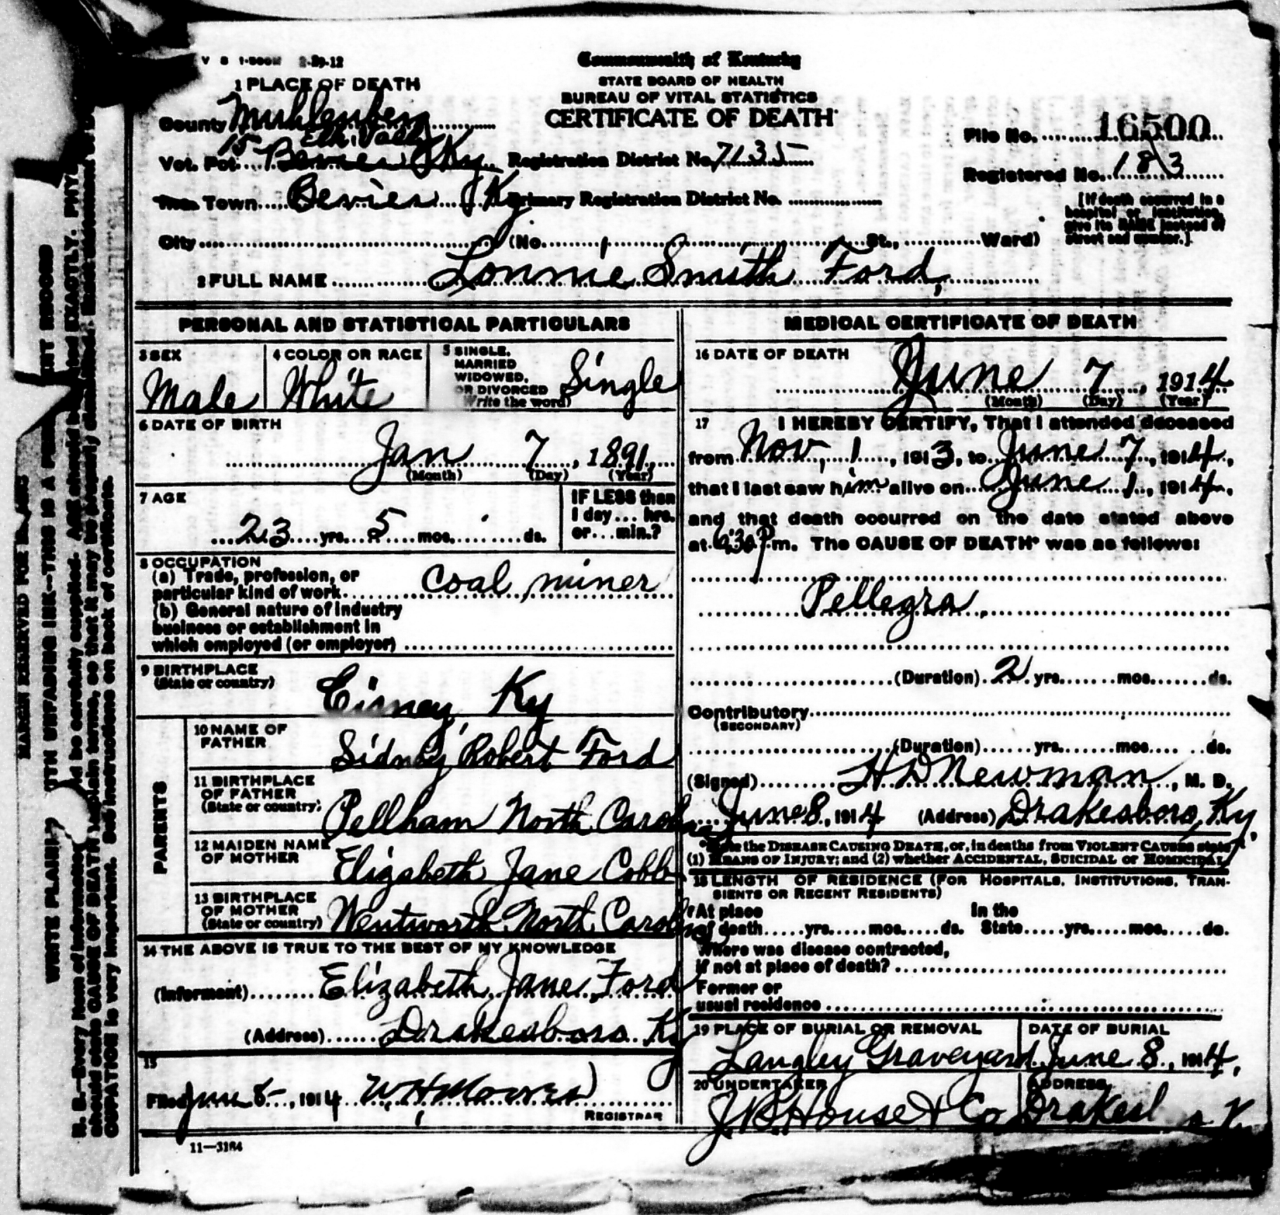 V S 1-500M 2-29-12
Commonwealth of Kentucky
STATE BOARD OF HEALTH
BUREAU OF VITAL STATISTICS
CERTIFICATE OF DEATH
1 PLACE OF DEATH
County Muhlenberg
15 Elk Vally
Vot. Pct. Bevier Ky Registration District No. 7135
File No. 16500
Registered No. 183
Town Bevier Ky Primary Registration District No.
City (No. St., Ward)
[If death occurred in a
hospital or institution,
give its NAME instead of
street and number.]
2 FULL NAME Lonnie Smith Ford,
PERSONAL AND STATISTICAL PARTICULARS
3 SEX
Male
4 COLOR OR RACE
White
5 SINGLE,
MARRIED
WIDOWED,
OR DIVORCED
Write the word) Single
6 DATE OF BIRTH
Jan 7, 1891,
(Month) (Day) (Year)
7 AGE
23 yrs. 5 mos. ds.
IF LESS than
1 day... hrs.
or... min.?
8 OCCUPATION
(a) Trade, profession, or
particular kind of work Coal miner
(b) General nature of industry
business or establishment in
which employed (or employer)
9 BIRTHPLACE
(State or country) Cisney, Ky
PARENTS
10 NAME OF
FATHER Sidney Robert Ford
11 BIRTHPLACE
OF FATHER
(State or country) Pellham North Carolina
12 MAIDEN NAME
OF MOTHER Elizabeth Jane Cobb
13 BIRTHPLACE
OF MOTHER
(State or country) Wentworth North Carolina
14 THE ABOVE IS TRUE TO THE BEST OF MY KNOWLEDGE
(Informant) Elizabeth Jane Ford
(Address) Drakesboro Ky
15
Filed June 8, 1914 W H Moores
REGISTRAR
11—3184
MEDICAL CERTIFICATE OF DEATH
16 DATE OF DEATH
June 7, 1914
(Month) (Day) (Year)
17 I HEREBY CERTIFY, That I attended deceased
from Nov, 1, 1913, to June 7, 1914,
that I last saw him alive on June 1, 1914,
and that death occurred on the date stated above
at 9:30 P m. The CAUSE OF DEATH* was as follows:
Pellegra,
(Duration) 2 yrs. mos. ds.
Contributory
(SECONDARY)
(Duration) yrs. mos. ds.
(Signed) H D Newman, M. D.
June 8, 1914 (Address) Drakesboro, Ky,
*State the DISEASE CAUSING DEATH, or, in deaths from VIOLENT CAUSES state
(1) MEANS OF INJURY; and (2) whether ACCIDENTAL, SUICIDAL OR HOMICIDAL
18 LENGTH OF RESIDENCE (FOR HOSPITALS, INSTITUTIONS, TRAN-
SIENTS OR RECENT RESIDENTS)
At place
of death yrs. mos. ds.
In the
State yrs. mos. ds.
Where was disease contracted,
If not at place of death?
Former or
usual residence
19 PLACE OF BURIAL OR REMOVAL
Langley Graveyard
DATE OF BURIAL
June 8, 1914,
20 UNDERTAKER
J.B. House & Co
ADDRESS
MARGIN RESERVED FOR
WRITE PLAINLY
WITH UNFADING INK—THIS IS A
N. B.—Every item of information
should state CAUSE OF DEATH
OCCUPATION is very important. See instructions on back of certificate.